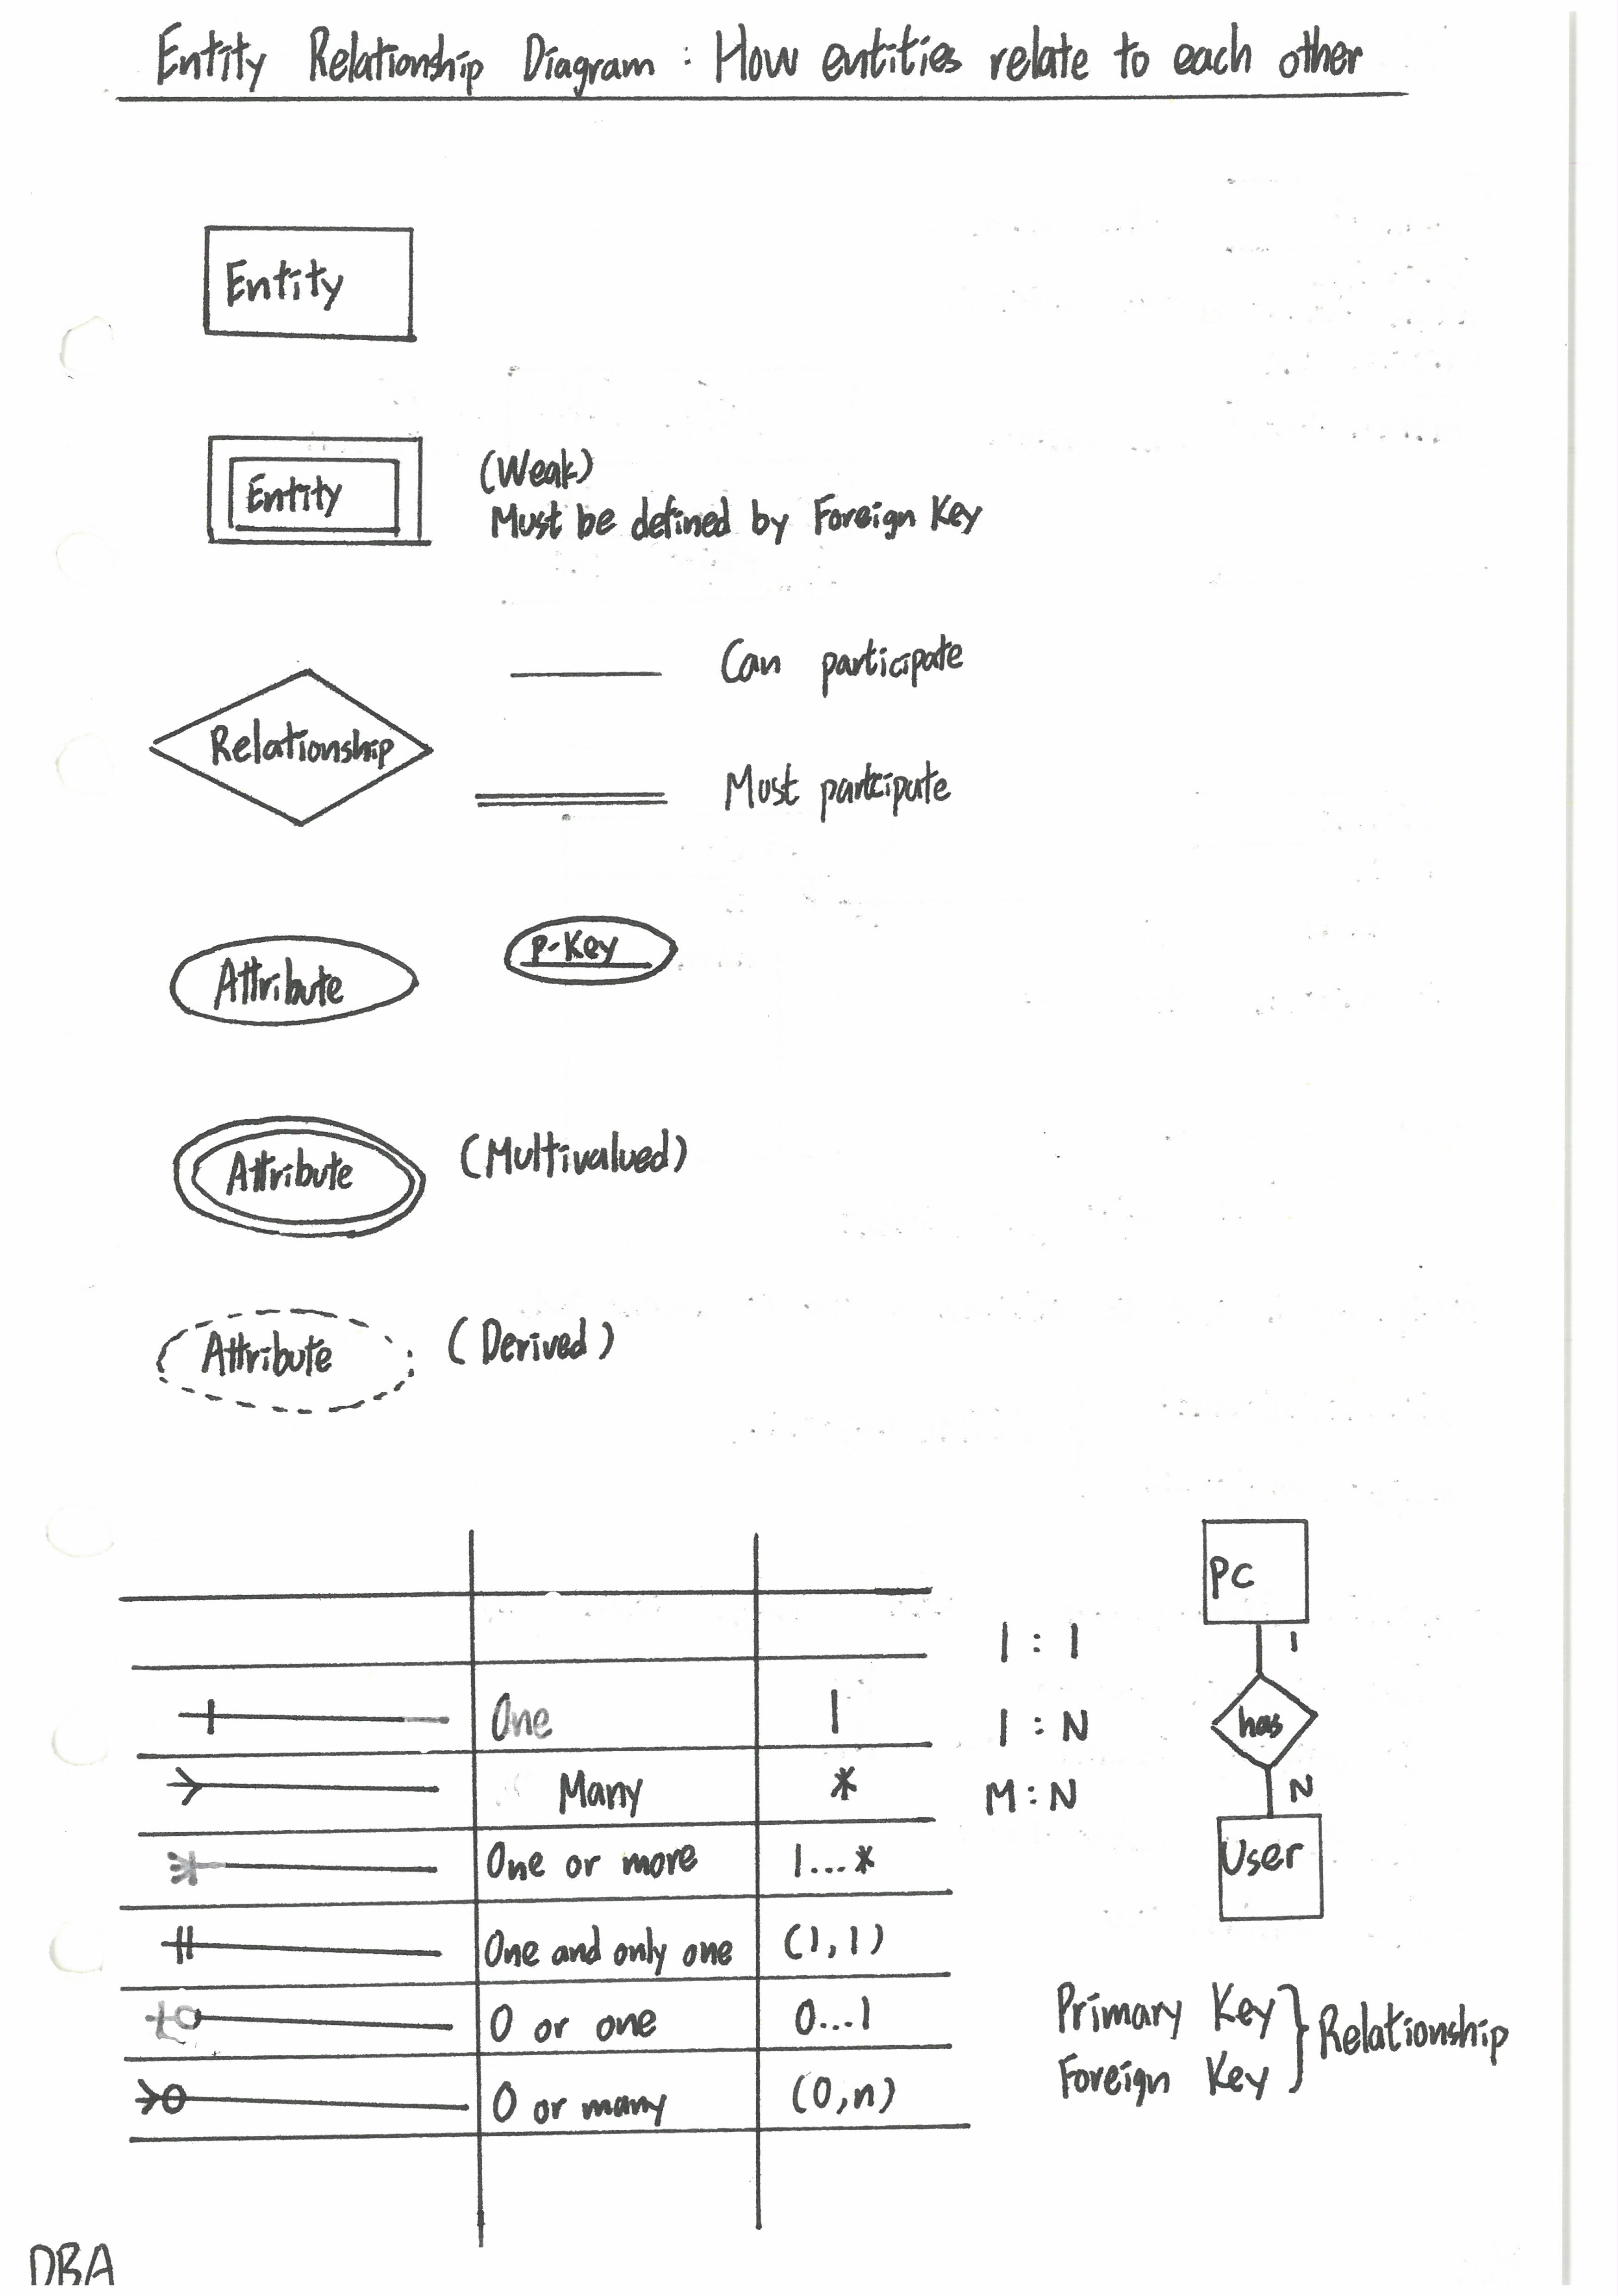 Entity Relationship Diagram : How entities relate to each other
Entity
Entity
(Weak)
Must be defined by Foreign Key
Relationship
Can participate
Must participate
Attribute
P-Key
Attribute
(Multivalued)
Attribute
(Derived)
One
1
Many
*
One or more
1...*
One and only one
(1,1)
0 or one
0...1
0 or many
(0,n)
1 : 1
1 : N
M : N
PC
1
has
N
User
Primary Key
Foreign Key
Relationship
DBA